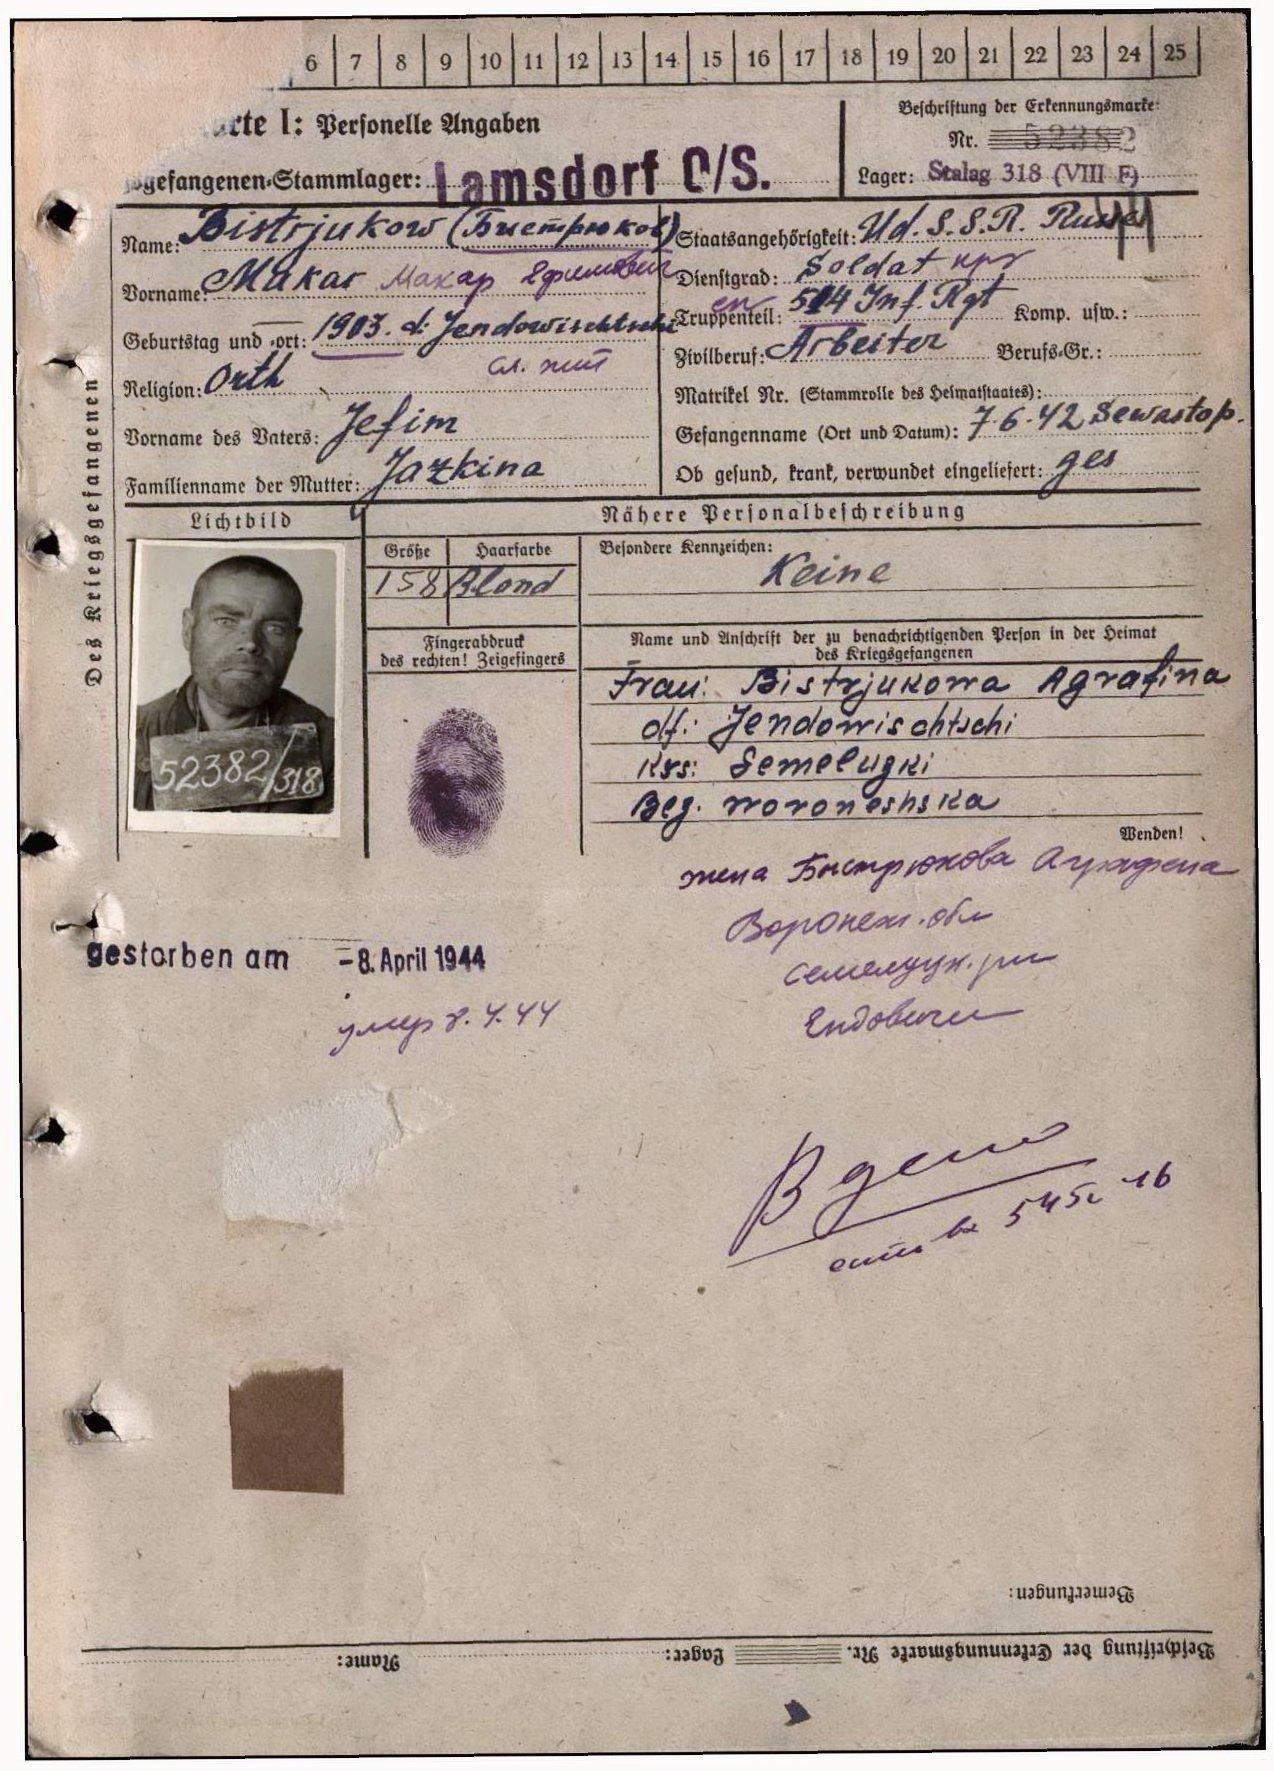 6 7 8 9 10 11 12 13 14 15 16 17 18 19 20 21 22 23 24 25
rte I: Personelle Angaben
Beschriftung der Erkennungsmarke:
Nr. 52382
gefangenen-Stammlager: Lamsdorf O/S.
Lager: Stalag 318 (VIII F)
Des Kriegsgefangenen
Name: Bistrjukow (Бистрюков)
Staatsangehörigkeit: Ud.S.S.R. Russe
Vorname: Makar Макар Ефимович
Dienstgrad: Soldat кр
Geburtstag und -ort: 1903. d: Jendowischtschi
Truppenteil: 514 Inf. Rgt Komp. usw.:
сл. жит
Zivilberuf: Arbeiter Berufs-Gr.:
Religion: Orth
Matrikel Nr. (Stammrolle des Heimatstaates):
Vorname des Vaters: Jefim
Gefangenname (Ort und Datum): 7.6.42 Sewastop.
Familienname der Mutter: Jazkina
Ob gesund, krank, verwundet eingeliefert: ges
Lichtbild
Nähere Personalbeschreibung
Größe Haarfarbe
158 Blond
Besondere Kennzeichen:
Keine
Fingerabdruck
des rechten! Zeigefingers
Name und Anschrift der zu benachrichtigenden Person in der Heimat
des Kriegsgefangenen
Frau: Bistrjukowa Agrafina
df: Jendowischtschi
Krs: Semelugki
Beg. Woroneshska
52382/318
Wenden!
жена Быстрюкова Аграфена
Воронеж. обл
Семелукк. рн
Ендовичи
gestorben am -8. April 1944
умер 8.4.44
В дело
Bemerkungen:
Beschriftung der Erkennungsmarke Nr. Lager: Name: